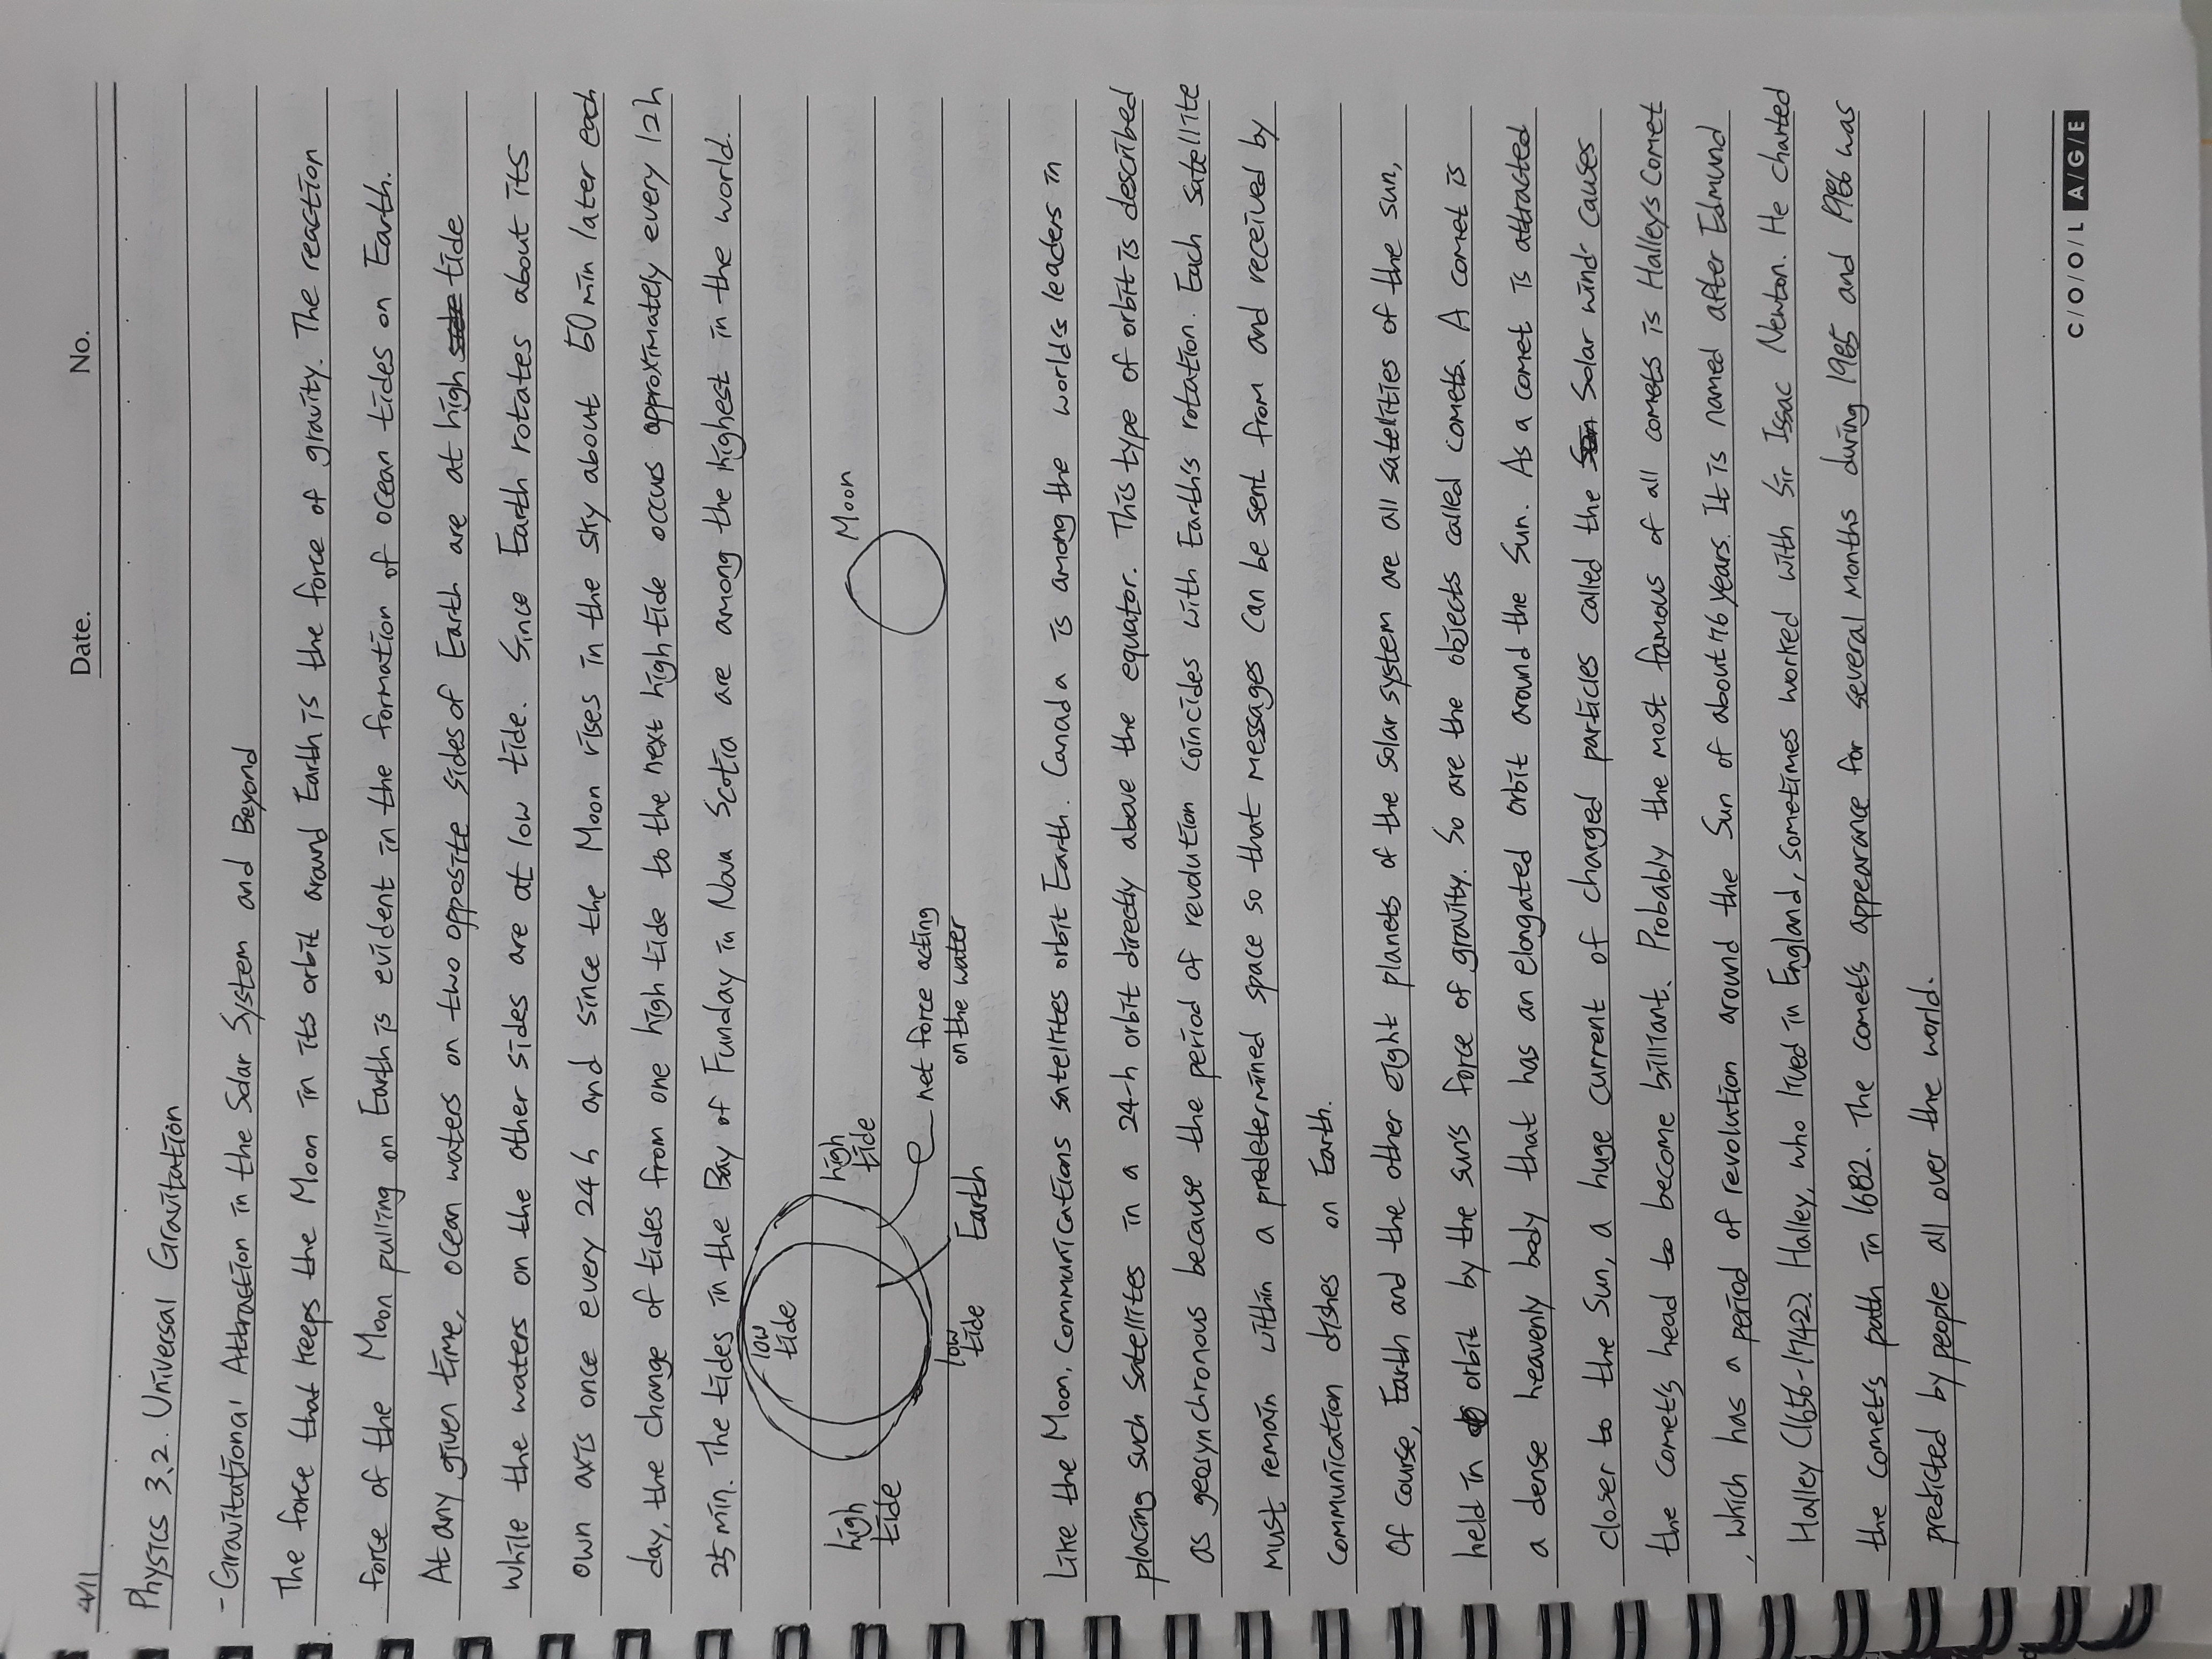 Date. No.
4/11
Physics 3.2. Universal Gravitation
- Gravitational Attraction in the Solar System and Beyond
The force that keeps the Moon in its orbit around Earth is the force of gravity. The reaction
force of the Moon pulling on Earth is evident in the formation of ocean tides on Earth.
At any given time, ocean waters on two opposite sides of Earth are at high tide
while the waters on the other sides are at low tide. Since Earth rotates about its
own axis once every 24 h and since the Moon rises in the sky about 50 min later each
day, the change of tides from one high tide to the next high tide occurs approximately every 12 h
25 min. The tides in the Bay of Funday in Nova Scotia are among the highest in the world.
low
tide
high
tide
Moon
high
tide
net force acting
on the water
low
tide
Earth
Like the Moon, Communications satellites orbit Earth. Canada is among the world's leaders in
placing such satellites in a 24-h orbit directly above the equator. This type of orbit is described
as geosynchronous because the period of revolution coincides with Earth's rotation. Each satellite
must remain within a predetermined space so that messages can be sent from and received by
communication dishes on Earth.
Of course, Earth and the other eight planets of the solar system are all satellities of the sun,
held in orbit by the sun's force of gravity. So are the objects called comets. A comet is
a dense heavenly body that has an elongated orbit around the Sun. As a comet is attracted
closer to the Sun, a huge current of charged particles called the Solar wind causes
the comet's head to become billiant. Probably the most famous of all comets is Halley's Comet
, which has a period of revolution around the Sun of about 76 years. It is named after Edmund
Halley (1656-1742). Halley, who lived in England, sometimes worked with Sir Issac Newton. He charted
the comet's path in 1682. The comet's appearance for several months during 1985 and 1986 was
predicted by people all over the world.
C/O/O/L A/G/E